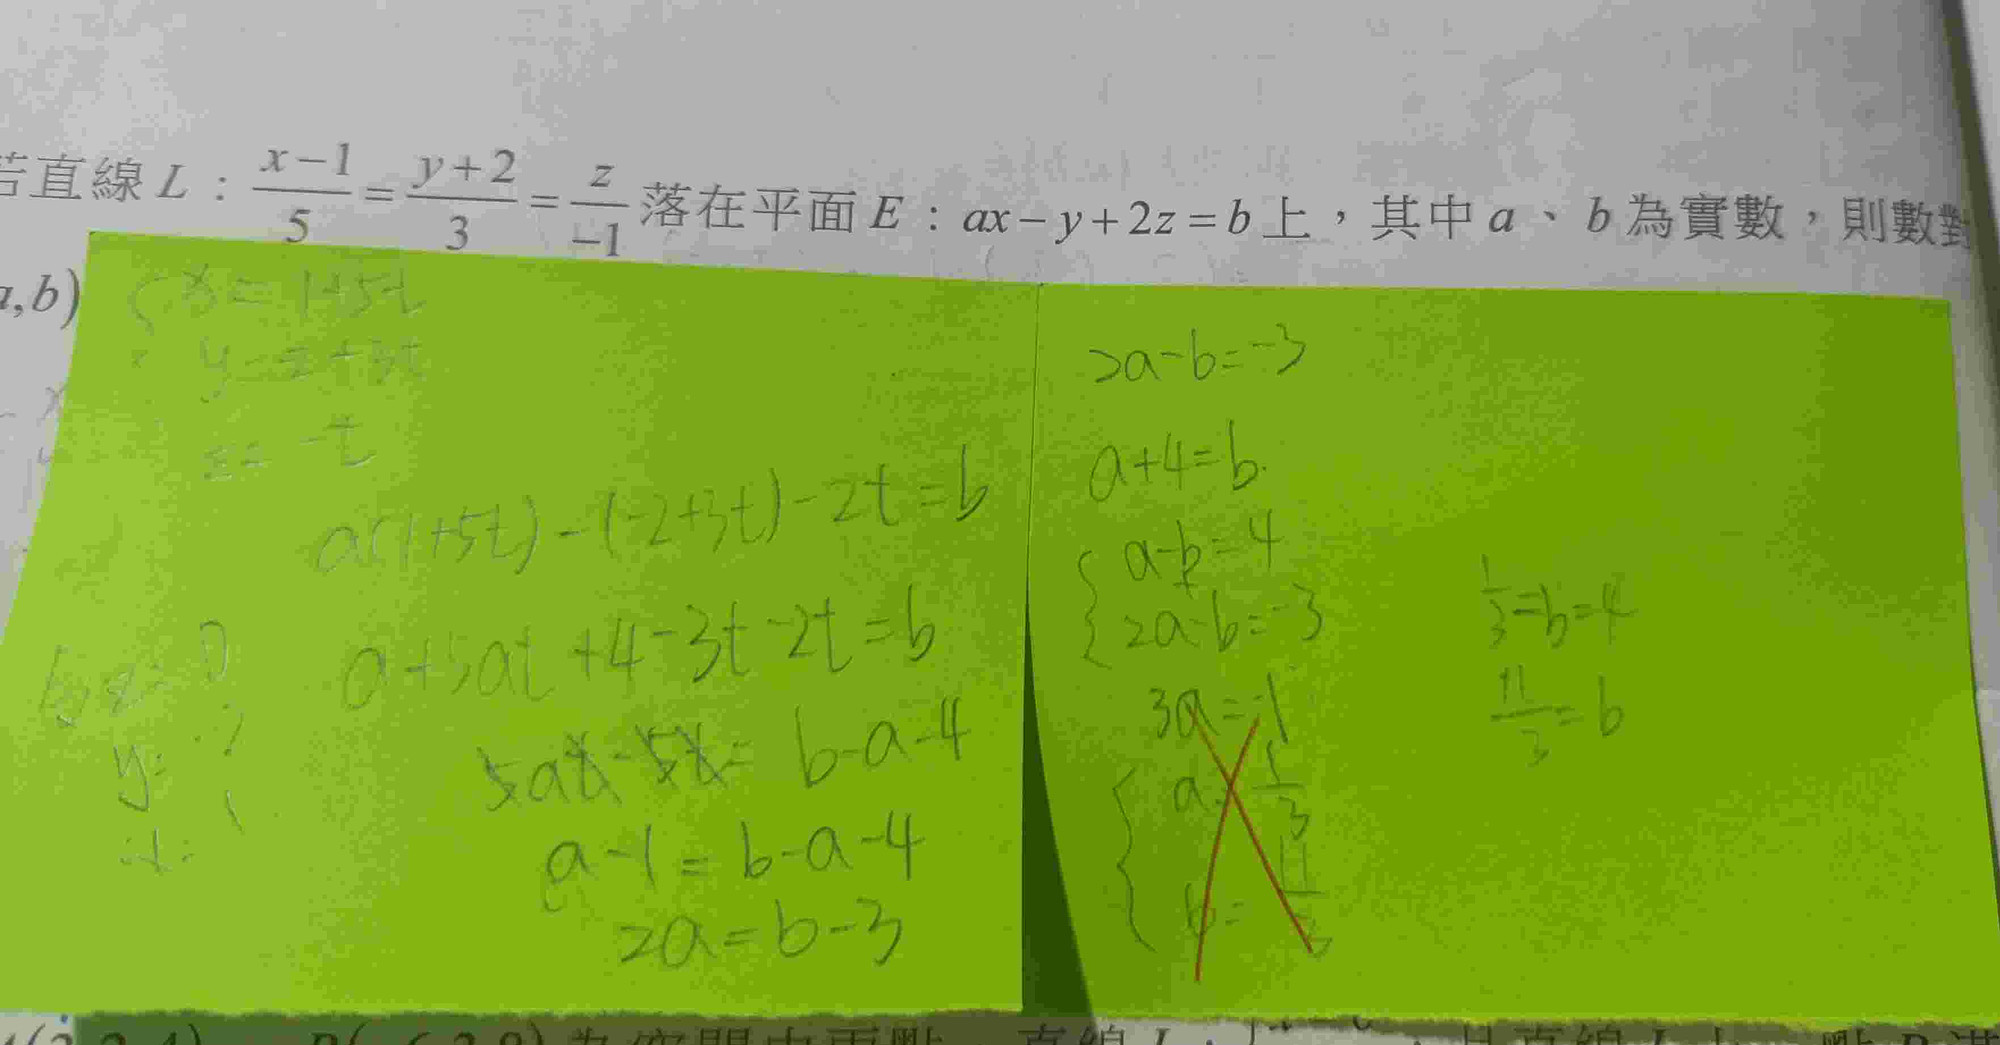 若直線 L : \frac{x-1}{5} = \frac{y+2}{3} = \frac{z}{-1} 落在平面 E : ax-y+2z=b 上，其中 a、b 為實數，則數對
(a,b)
x = 1+5t
y = -2+3t
z = -t
a(1+5t)-(-2+3t)-2t=b
a+5at+4-3t-2t=b
5at-5t=b-a-4
a-1=b-a-4
2a=b-3
2a-b=-3
a+4=b
a-b=4
2a-b=-3
3a=-1
a=\frac{1}{3}
b=\frac{11}{3}
\frac{1}{3}=b=4
\frac{11}{3}=b